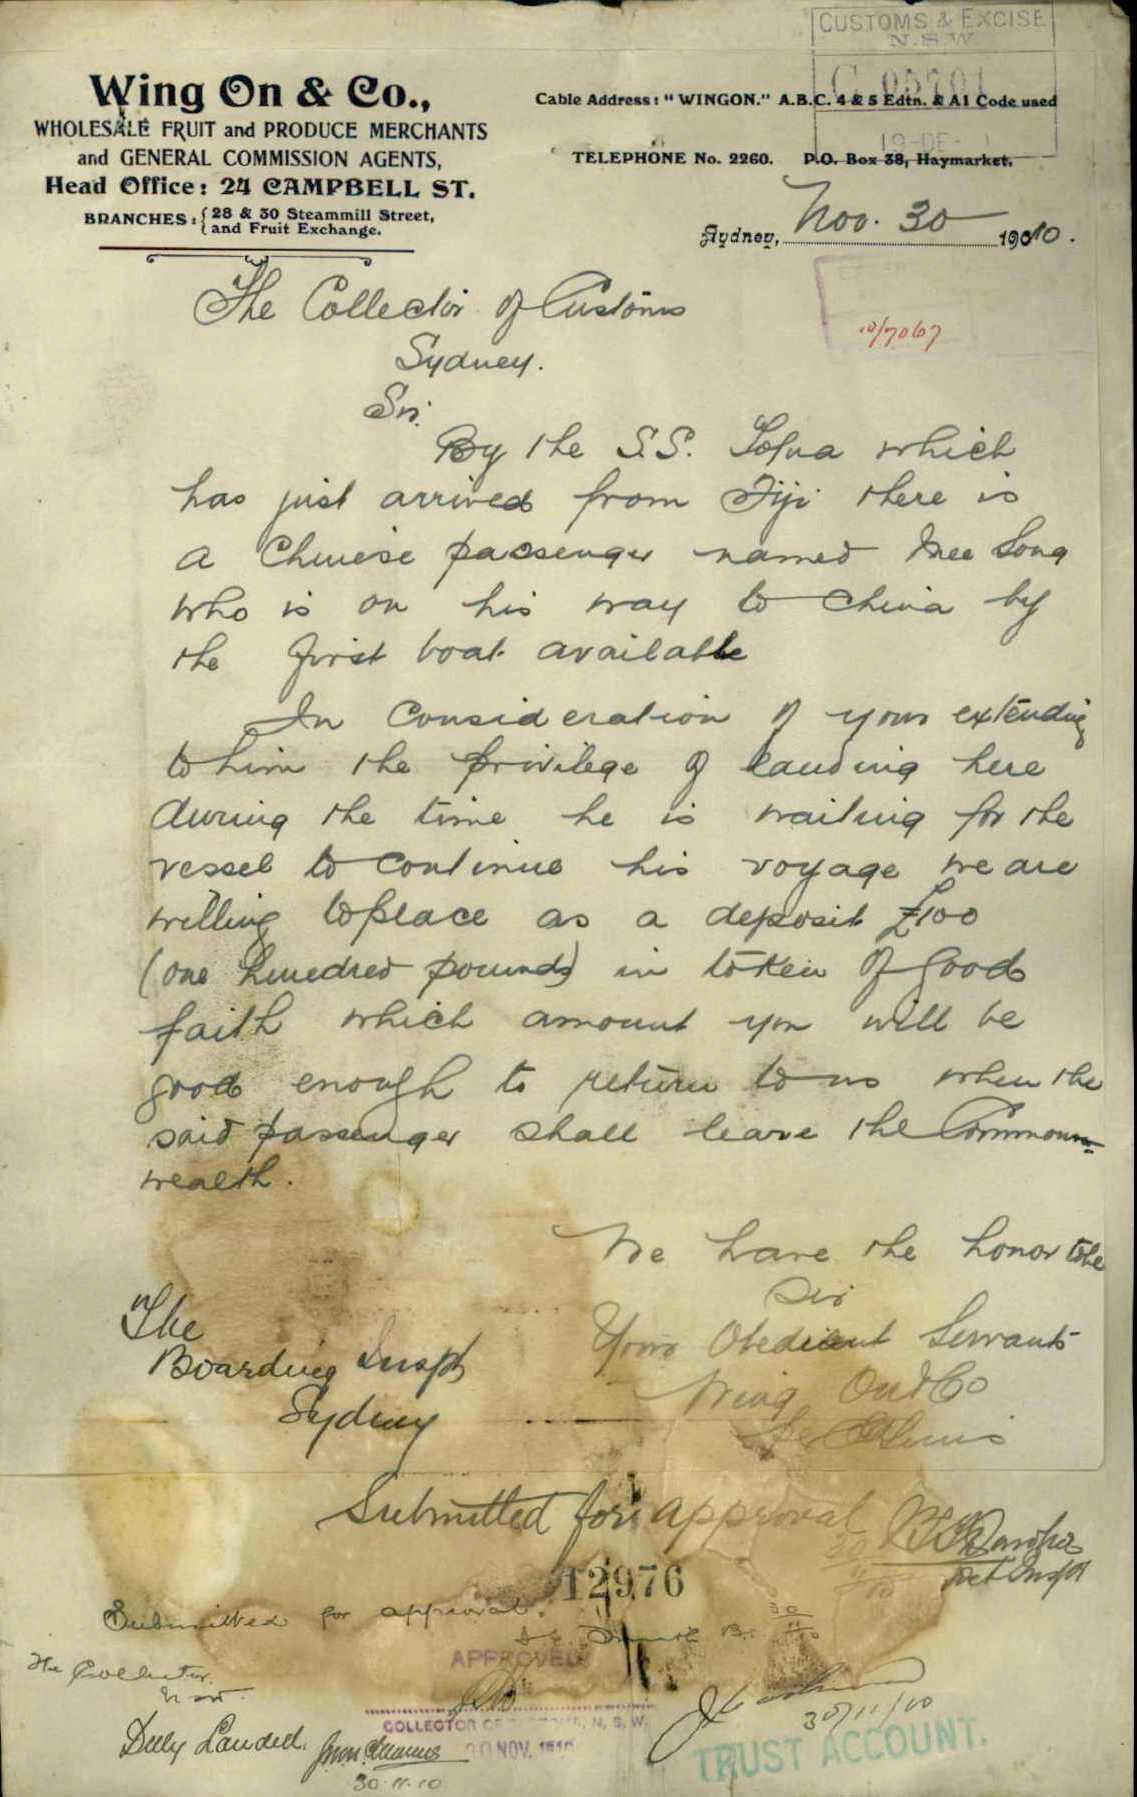 CUSTOMS & EXCISE
N.S.W
Wing On & Co.,
WHOLESALE FRUIT and PRODUCE MERCHANTS
and GENERAL COMMISSION AGENTS,
Head Office: 24 CAMPBELL ST.
BRANCHES: { 28 & 30 Steammill Street,
and Fruit Exchange.
Cable Address: "WINGON." A.B.C. 4 & 5 Edtn. & A1 Code used
TELEPHONE No. 2260. P.O. Box 38, Haymarket.
Sydney, Nov. 30 1910.
10/7067
The Collector of Customs
Sydney.
Sir.
By the S.S. Tofua which
has just arrived from Fiji there is
a Chinese passenger named Mee Song
who is on his way to China by
the first boat available
In Consideration of your extending
to him the privilege of landing here
during the time he is waiting for the
vessel to continue his voyage we are
willing to place as a deposit £100
(one hundred pounds) in token of good
faith which amount you will be
good enough to return to us when the
said passenger shall leave the Common-
wealth.
We have the honor to be
Sir
Your Obedient Servants
Wing On & Co
The
Boarding Inspr
Sydney
Submitted for approval
Det Inspr
12976
Submitted for approval.
The Collector
NSW.
APPROVED
COLLECTOR OF CUSTOMS, N.S.W.
30 NOV. 1910
30/11/10
Duly Landed.
30.11.10
TRUST ACCOUNT.